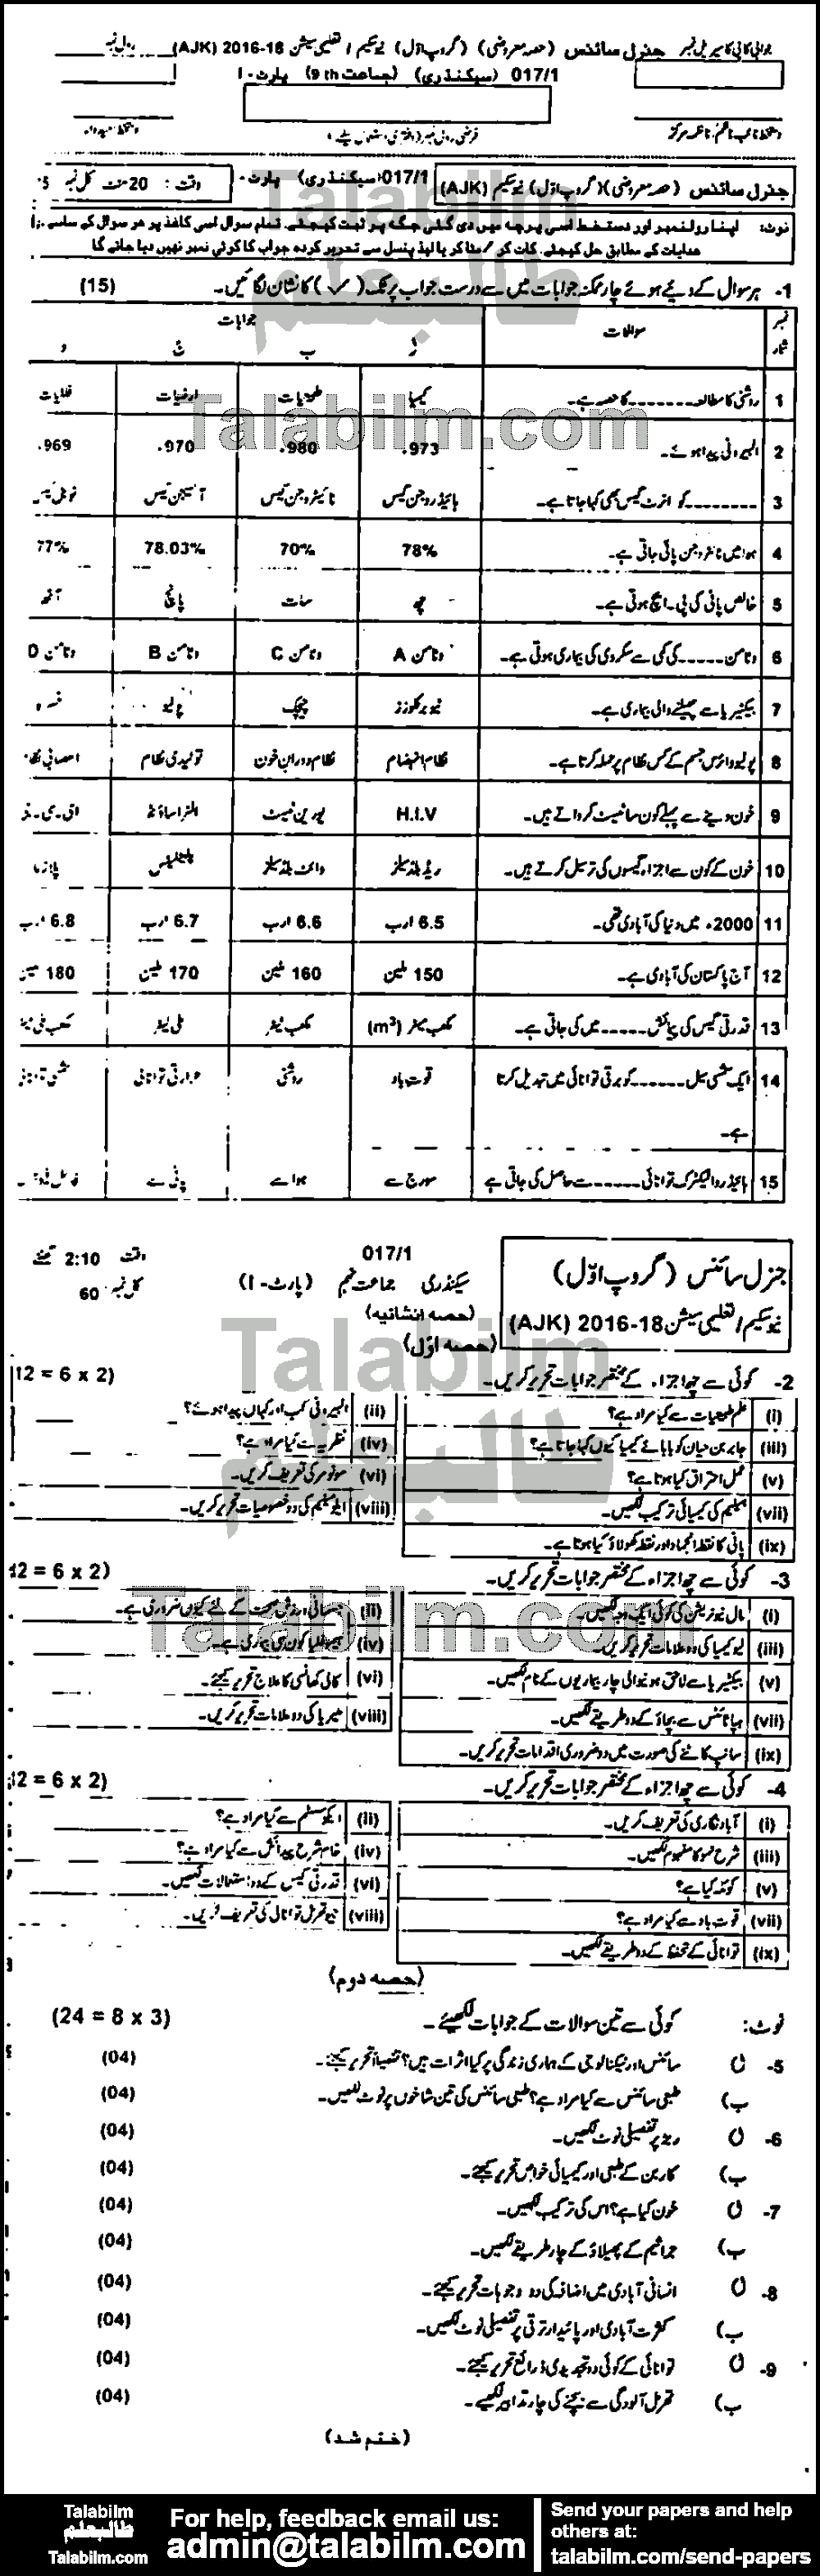 جوابی کاپی کا سیریل نمبر جنرل سائنس (حصہ معروضی) (گروپ اوّل) نیو سکیم / تعلیمی سیشن 2016-18 (AJK) رول نمبر
017/1 (سیکنڈری) (جماعت 9th) پارٹ - I
جنرل سائنس (حصہ معروضی) (گروپ اوّل) نیو سکیم (AJK) 017/1 (سیکنڈری) پارٹ - وقت: 20 منٹ کل نمبر
نوٹ: اپنا رولنمبر اور دستخط اسی پرچہ میں دی گئی جگہ پر ثبت کیجئے۔ تمام سوال اسی کاغذ پر ہر سوال کے سامنے
ہدایات کے مطابق حل کیجئے۔ کاٹ کر / مٹا کر یا لیڈ پنسل سے تحریر کردہ جواب کا کوئی نمبر نہیں دیا جائے گا
1- ہر سوال کے دیئے ہوئے چار ممکنہ جوابات میں سے درست جواب پر ٹک (✓) کا نشان لگائیں۔ (15)
نمبر شمار سوالات جوابات
ا ب ج د
1 روشنی کا مطالعہ ------- کا حصہ ہے۔ کیمیا طبیعیات ارضیات فلکیات
2 البیرونی پیدا ہوئے۔ 973ء 980ء 970ء 969ء
3 -------- کو انرٹ گیس بھی کہا جاتا ہے۔ ہائیڈروجن گیس نائیٹروجن گیس آکسیجن گیس نوبل گیس
4 ہوا میں نائٹروجن پائی جاتی ہے۔ 78% 70% 78.03% 77%
5 خالص پانی کی پی۔ایچ ہوتی ہے۔ چھ سات پانچ آٹھ
6 وٹامن ----- کی کمی سے سکروی کی بیماری ہوتی ہے۔ وٹامن A وٹامن C وٹامن B وٹامن D
7 بیکٹیریا سے پھیلنے والی بیماری ہے۔ ٹیوبرکلوزز چیچک پولیو خسرہ
8 پولیو وائرس جسم کے کس نظام پر حملہ کرتا ہے۔ نظام انہضام نظام دوران خون تولیدی نظام اعصابی نظام
9 خون دینے سے پہلے کون سا ٹیسٹ کرواتے ہیں۔ H.I.V یورین ٹیسٹ الٹراساؤنڈ ای۔سی۔
10 خون کے کون سے اجزاء گیسوں کی ترسیل کرتے ہیں۔ ریڈ بلڈ سیلز وائٹ بلڈ سیلز پلیٹلیٹس پلازما
11 2000ء میں دنیا کی آبادی تھی۔ 6.5 ارب 6.6 ارب 6.7 ارب 6.8 ارب
12 آج پاکستان کی آبادی ہے۔ 150 ملین 160 ملین 170 ملین 180 ملین
13 قدرتی گیس کی پیمائش ----- میں کی جاتی ہے۔ کیوبک میٹر (m³) مکعب لیٹر ملی لیٹر
14 ایک شمسی سیل ------- کو برقی توانائی میں تبدیل کرتا قوت باد روشنی حرارتی توانائی شمسی توانائی
ہے۔
15 ہائیڈرو الیکٹرک توانائی ------ سے حاصل کی جاتی ہے سورج سے ہوا سے پانی سے
جنرل سائنس (گروپ اوّل) 017/1 وقت 2:10 گھنٹے
سیکنڈری جماعت نہم (پارٹ - I) کل نمبر 60
نیو سکیم / تعلیمی سیشن 2016-18 (AJK) (حصہ انشائیہ)
(حصہ اوّل)
2- کوئی سے چھ اجزاء کے مختصر جوابات تحریر کریں۔ (12 = 6 x 2)
(i) علم طبیعیات سے کیا مراد ہے؟ (ii) البیرونی کب اور کہاں پیدا ہوئے؟
(iii) جابر بن حیان کو بابائے کیمیا کیوں کہا جاتا ہے؟ (iv) نظریہ سے کیا مراد ہے؟
(v) عمل احتراق کیا ہوتا ہے؟ (vi) مونومر کی تعریف کریں۔
(vii) جپسم کی کیمیائی ترکیب لکھیں۔ (viii) ایلومینیم کی دو خصوصیات تحریر کریں۔
(ix) پانی کا نقطہ انجماد اور نقطہ کھولاؤ کیا ہوتا ہے۔
3- کوئی سے چھ اجزاء کے مختصر جوابات تحریر کریں۔ (12 = 6 x 2)
(i) مال نیوٹریشن کی کوئی ایک وجہ لکھیں۔ (ii) جسمانی ورزش صحت کے لئے کیوں ضروری ہے۔
(iii) لیوکیمیا کی دو علامات تحریر کریں۔ (iv) ہیموفیلیا کون سی بیماری ہے۔
(v) بیکٹیریا سے لاحق ہونیوالی چار بیماریوں کے نام لکھیں۔ (vi) کالی کھانسی کا علاج تحریر کیجئے۔
(vii) ہیپاٹائٹس سے بچاؤ کے دو طریقے لکھیں۔ (viii) ملیریا کی دو علامات تحریر کریں۔
(ix) سانپ کاٹنے کی صورت میں دو ضروری اقدامات تحریر کریں۔
4- کوئی سے چھ اجزاء کے مختصر جوابات تحریر کریں۔ (12 = 6 x 2)
(i) آباد نگاری کی تعریف کریں۔ (ii) ایکو سسٹم سے کیا مراد ہے؟
(iii) شرح نمو کا مفہوم لکھیں۔ (iv) خام شرح پیدائش سے کیا مراد ہے؟
(v) کوئلہ کیا ہے؟ (vi) قدرتی گیس کے دو استعمالات لکھیں۔
(vii) قوت باد سے کیا مراد ہے؟ (viii) جیوتھرمل توانائی کی تعریف کریں۔
(ix) توانائی کے تحفظ کے دو طریقے لکھیں۔
(حصہ دوم)
نوٹ: کوئی سے تین سوالات کے جوابات لکھیئے۔ (24 = 8 x 3)
5- ا) سائنس اور ٹیکنالوجی کے ہماری زندگی پر کیا اثرات ہیں؟ تفصیلاً تحریر کیجئے۔ (04)
ب) طبعی سائنس سے کیا مراد ہے؟ طبعی سائنس کی تین شاخوں پر نوٹ لکھیں۔ (04)
6- ا) ربڑ پر تفصیلی نوٹ لکھیں۔ (04)
ب) کاربن کے طبعی اور کیمیائی خواص تحریر کیجئے۔ (04)
7- ا) خون کیا ہے؟ اس کی ترکیب لکھیں۔ (04)
ب) جراثیم کے پھیلاؤ کے چار طریقے لکھیں۔ (04)
8- ا) انسانی آبادی میں اضافہ کی دو وجوہات تحریر کیجئے۔ (04)
ب) کثرت آبادی اور پائیدار ترقی پر تفصیلی نوٹ لکھیں۔ (04)
9- ا) توانائی کے کوئی دو تجدیدی ذرائع تحریر کیجئے۔ (04)
ب) تھرمل آلودگی سے بچنے کی چار تدابیر لکھیے۔ (04)
(ختم شد)
Talabilm
طالبعلم
Talabilm.com
For help, feedback email us:
admin@talabilm.com
Send your papers and help
others at:
talabilm.com/send-papers